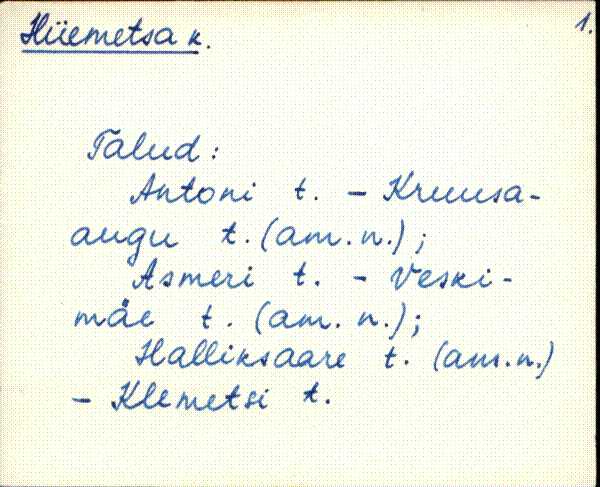 Hüemetsa k.
1.
Talud:
Antoni t. – Kruusa-
augu t. (am.n.);
Asmeri t. – Veski-
mäe t. (am.n.);
Halliksaare t. (am.n.)
– Klemetsi t.